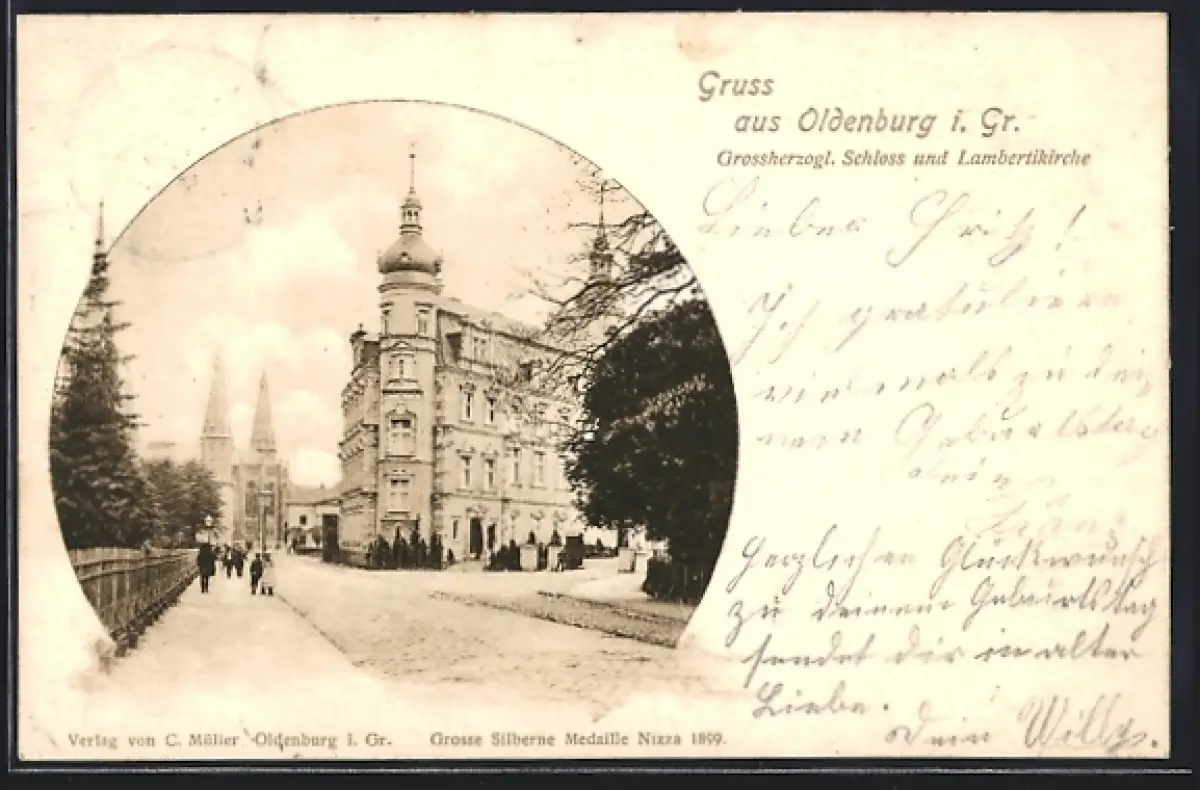 Gruss
aus Oldenburg i. Gr.
Grossherzogl. Schloss und Lambertikirche
Lieber Fritz!
Ich gratuliere
vielmals zu dei-
nem Geburtstag
Dein
Franz
Herzlichen Glückwunsch
zu deinem Geburtstag
sendet dir in alter
Liebe.
Dein Willy.
Verlag von C. Müller Oldenburg i. Gr. Grosse Silberne Medaille Nizza 1899.